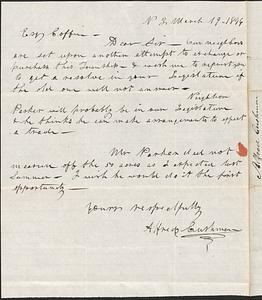 N 2 March 19. 1844
Esq Coffin –
Dear Sir – our neighbors
are set upon another attempt to exchange or
purchase this Township & wish me to request you
to get a resolve in your Legislature if
the old one will not answer – Neighbor
Parker will probably be in our Legislature
& he thinks he can make arrangements to effect
a trade –
Mr Parker did not
measure off the 50 acres as I expected last
Summer – I wish he would do it the first
opportunity –
Yours respectfully
Alfred Cushman